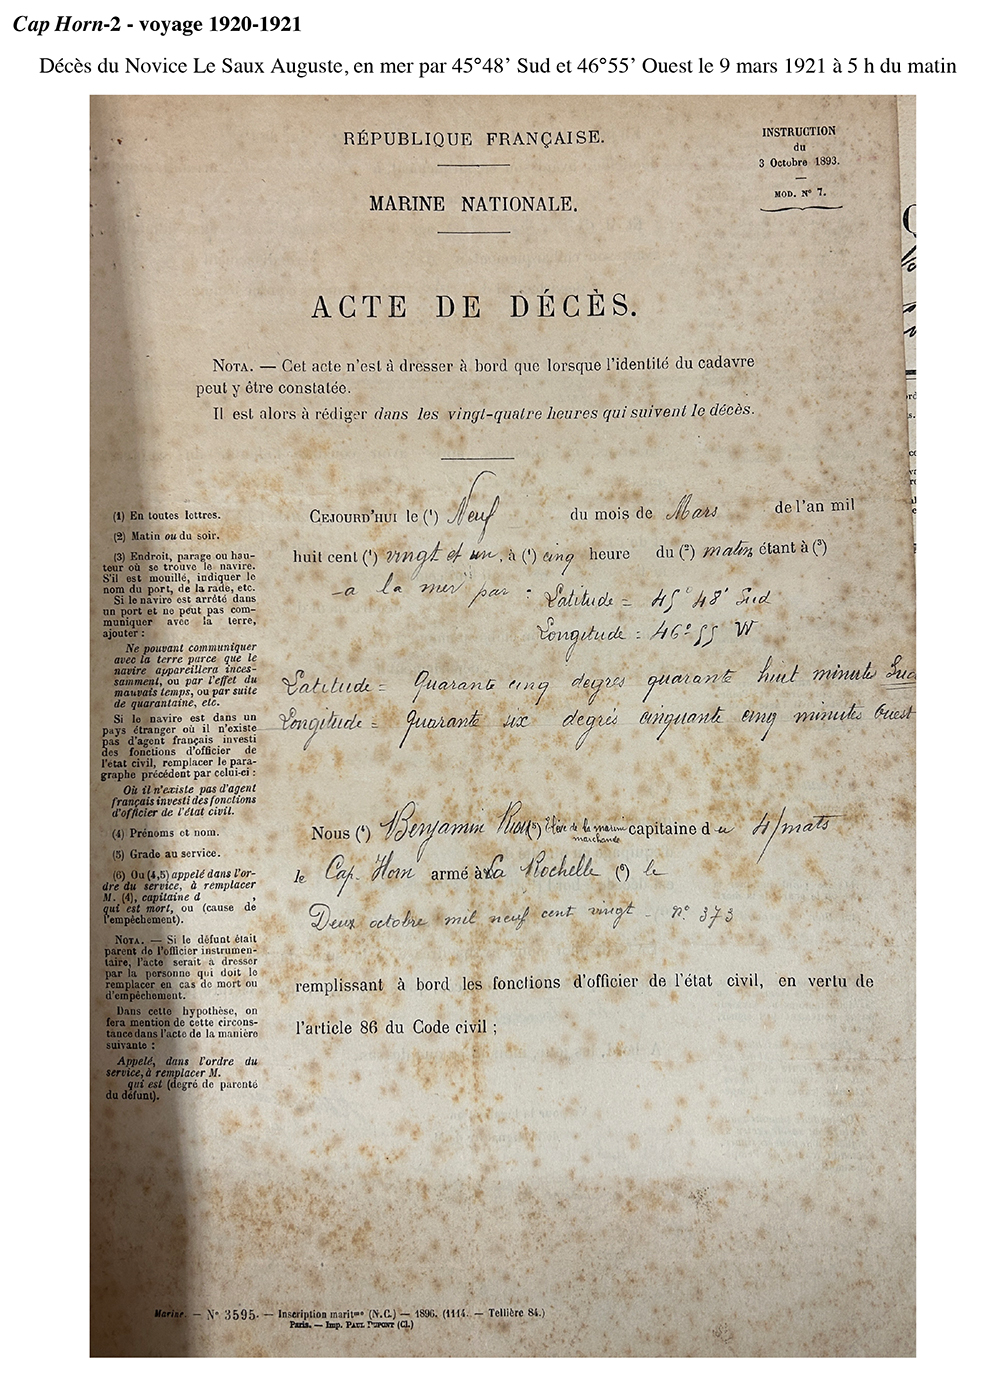 Cap Horn-2 - voyage 1920-1921
Décès du Novice Le Saux Auguste, en mer par 45°48’ Sud et 46°55’ Ouest le 9 mars 1921 à 5 h du matin
RÉPUBLIQUE FRANÇAISE.
INSTRUCTION
du
3 Octobre 1893.
MOD. N° 7.
MARINE NATIONALE.
ACTE DE DÉCÈS.
NOTA. — Cet acte n'est à dresser à bord que lorsque l'identité du cadavre
peut y être constatée.
Il est alors à rédiger dans les vingt-quatre heures qui suivent le décès.
CEJOURD'HUI le (1) Neuf du mois de Mars de l'an mil
huit cent (1) vingt et un, à (1) cinq heure du (2) matin étant à (3)
a la mer par : Latitude = 45° 48' Sud
Longitude = 46° 55 W
Latitude = Quarante cinq degrés quarante huit minutes Sud
Longitude = Quarante six degrés cinquante cinq minutes Ouest
Nous (4) Benjamin (5) Elève de la marine marchande capitaine d u 4/mats
le Cap Horn armé à La Rochelle (6) le
Deux octobre mil neuf cent vingt - n° 373
remplissant à bord les fonctions d'officier de l'état civil, en vertu de
l'article 86 du Code civil ;
(1) En toutes lettres.
(2) Matin ou du soir.
(3) Endroit, parage ou hau-
teur où se trouve le navire.
S'il est mouillé, indiquer le
nom du port, de la rade, etc.
Si le navire est arrêté dans
un port et ne peut pas com-
muniquer avec la terre,
ajouter :
Ne pouvant communiquer
avec la terre parce que le
navire appareillera inces-
samment, ou par l'effet du
mauvais temps, ou par suite
de quarantaine, etc.
Si le navire est dans un
pays étranger où il n'existe
pas d'agent français investi
des fonctions d'officier de
l'état civil, remplacer le para-
graphe précédent par celui-ci :
Où il n'existe pas d'agent
français investi des fonctions
d'officier de l'état civil.
(4) Prénoms et nom.
(5) Grade au service.
(6) Ou (4,5) appelé dans l'or-
dre du service, à remplacer
M. (4), capitaine d ,
qui est mort, ou (cause de
l'empêchement).
NOTA. — Si le défunt était
parent de l'officier instrumen-
taire, l'acte serait à dresser
par la personne qui doit le
remplacer en cas de mort ou
d'empêchement.
Dans cette hypothèse, on
fera mention de cette circons-
tance dans l'acte de la manière
suivante :
Appelé, dans l'ordre du
service, à remplacer M.
qui est (degré de parenté
du défunt).
Marine. — N° 3595. — Inscription maritme (N.C.) — 1896. (1114. — Tellière 84.)
Paris. — Imp. PAUL DUPONT (Cl.)